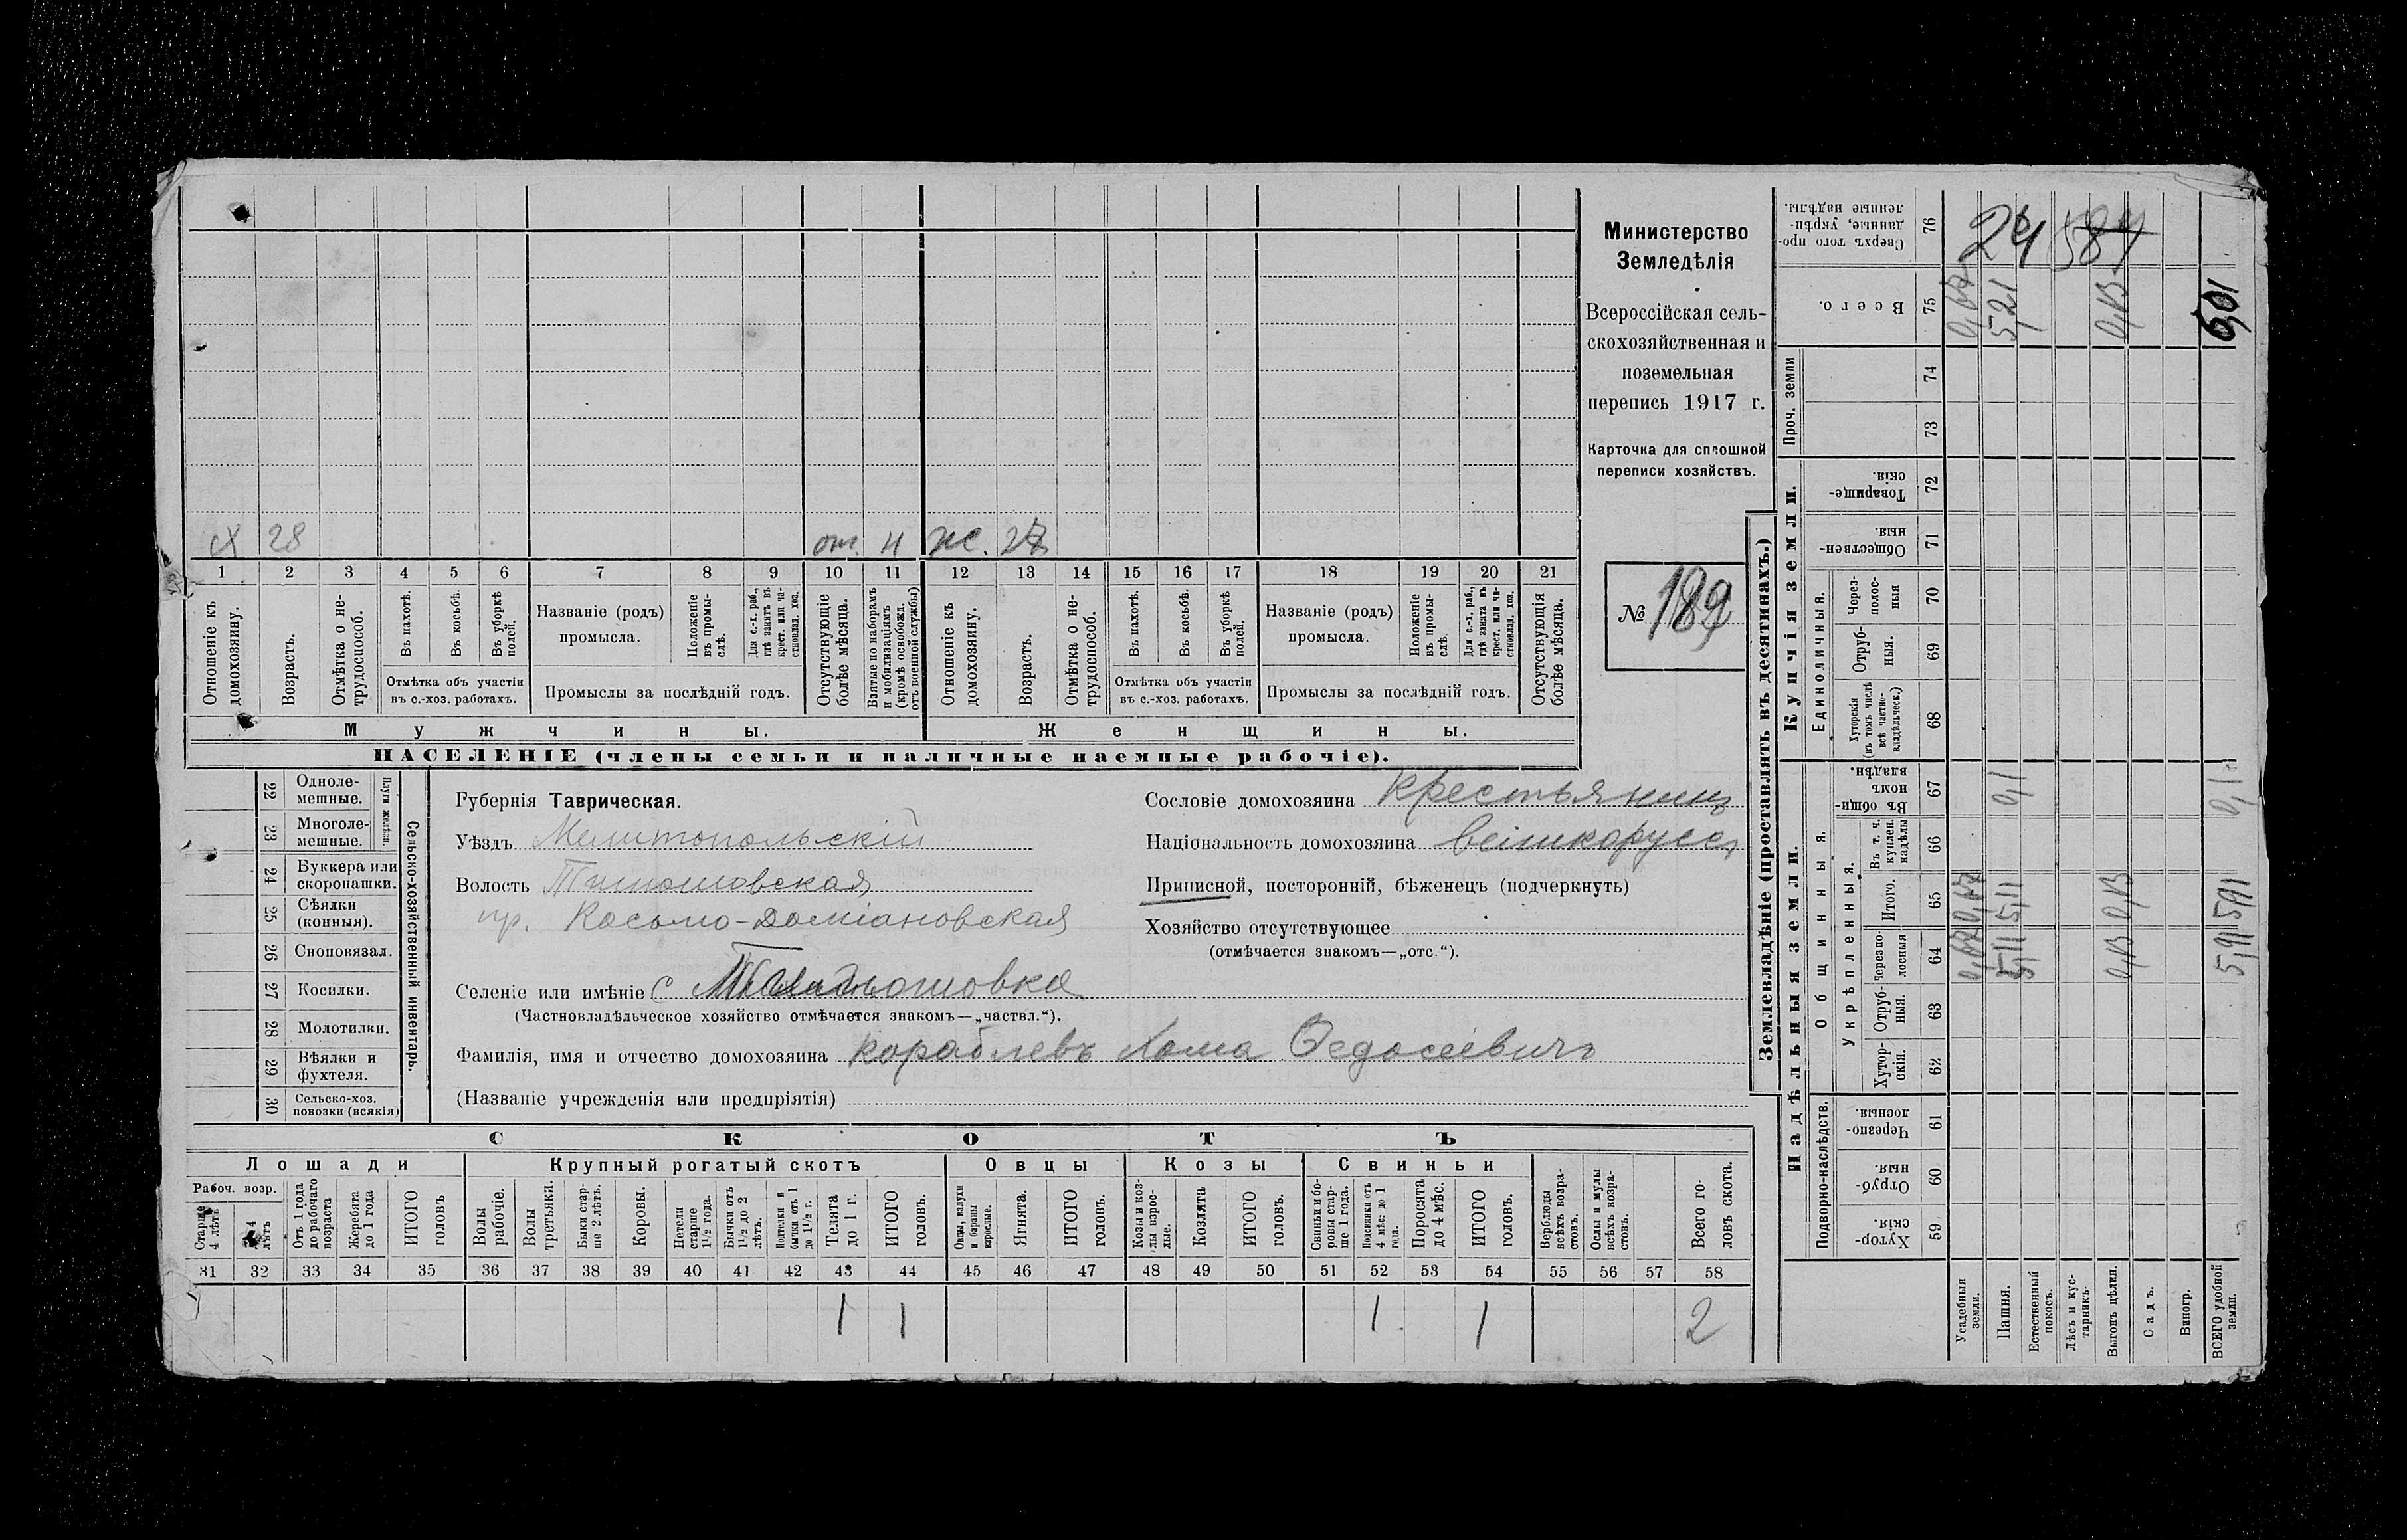 Министерство
Земледѣлія
Всероссійская сель-
скохозяйственная и
поземельная
перепись 1917 г.
Карточка для сплошной
переписи хозяйствъ.
№ 189
х 28 от. ж. 27
1 2 3 4 5 6 7 8 9 10 11 12 13 14 15 16 17 18 19 20 21
Отношеніе къ домохозяину.
Возрастъ.
Отмѣтка о не-трудоспособ.
Въ пахотѣ.
Въ косьбѣ.
Въ уборкѣ полей.
Отмѣтка объ участіи
въ с.-хоз. работахъ.
Названіе (родъ)
промысла.
Положеніе въ промы-слѣ.
Для с.-х. раб., гдѣ занятъ въ крест. или ча-стновлад. хоз.
Промыслы за послѣдній годъ.
Отсутствующіе болѣе мѣсяца.
Взятые по наборамъ и мобилизаціямъ (кромѣ освобожл. отъ военной службы)
Отношеніе къ домохозяину.
Возрастъ.
Отмѣтка о не-трудоспособ.
Въ пахотѣ.
Въ косьбѣ.
Въ уборкѣ полей.
Отмѣтка объ участіи
въ с.-хоз. работахъ.
Названіе (родъ)
промысла.
Положеніе въ промы-слѣ.
Для с.-х. раб., гдѣ занята въ крест. или ча-стновлад. хоз.
Промыслы за послѣдній годъ.
Отсутствующія болѣе мѣсяца.
Мужчины. Женщины.
НАСЕЛЕНІЕ (члены семьи и наличные наемные рабочіе).
Сельско-хозяйственный инвентарь.
22 Одноле-мешные.
23 Многоле-мешные.
24 Буккера или скоропашки.
25 Сѣялки (конныя).
26 Сноповязал.
27 Косилки.
28 Молотилки.
29 Вѣялки и фухтеля.
30 Сельско-хоз. повозки (всякія)
Губернія Таврическая.
Уѣздъ Мелитопольскій
Волость Тимошовская
пр. Косьмо-Доміановская
Селеніе или имѣніе с Тимошовка
(Частновладѣльческое хозяйство отмѣчается знакомъ—„частвл.“).
Фамилія, имя и отчество домохозяина Кораблевъ Хома Федосеевичъ
(Названіе учрежденія или предпріятія)
Сословіе домохозяина крестьянинъ
Національность домохозяина великоруссъ
Приписной, посторонній, бѣженецъ (подчеркнуть)
Хозяйство отсутствующее
(отмѣчается знакомъ—„отс.“).
СКОТЪ
Лошади Крупный рогатый скотъ Овцы Козы Свиньи
Рабоч. возр.
Старше 4 лѣтъ
4 лѣтъ
Отъ 1 года до рабочаго возраста
Жеребята до 1 года
ИТОГО головъ
Волы рабочіе.
Волы третьяки.
Быки стар-ше 2 лѣтъ.
Коровы.
Нетели старше 1½ года.
Бычки отъ 1½ до 2 лѣтъ.
Подтелки и бычки отъ 1 до 1½ г.
Телята до 1 г.
ИТОГО головъ.
Овцы, валухи и бараны взрослые.
Ягнята.
ИТОГО головъ.
Козы и коз-лы взрос-лые.
Козлята
ИТОГО головъ.
Свиньи и бо-ровы стар-ше 1 года.
Подсвинки отъ 4 мѣс: до 1 года.
Поросята до 4 мѣс.
ИТОГО головъ.
Верблюды всѣхъ возра-стовъ.
Ослы и мулы всѣхъ возра-стовъ.
Всего го-ловъ скота.
31 32 33 34 35 36 37 38 39 40 41 42 43 44 45 46 47 48 49 50 51 52 53 54 55 56 57 58
1 1 1 1 2
Землевладѣніе (проставлять въ десятинахъ.)
Надѣльныя земли. Купчія земли. Проч. земли
Подворно-наслѣдств.
Общинныя.
Укрѣпленныя.
Единоличныя.
59 Хутор-скія.
60 Отруб-ныя.
61 Черезпо-лосныя.
62 Хутор-скія.
63 Отруб-ныя.
64 Черезпо-лосныя
65 Итого.
66 Въ т. ч. куплен. надѣлы
67 Въ общи-номъ владѣн.
68 Хуторскія (въ томъ числѣ всѣ частно-владѣльческ.)
69 Отруб-ныя.
70 Через-полос-ныя
71 Обществен-ныя.
72 Товарище-скія.
73
74
75 Всего.
76 Сверхъ того про-данные, укрѣп-ленные надѣлы.
Усадебныя земли.
Пашня. 5,11 5,11 0,1 5,21
Естественный покосъ.
Лѣсъ и кус-тарникъ.
Выгонъ цѣлин. 0,13 0,13 0,13
Садъ.
Виногр.
ВСЕГО удобной земли. 5,91 5,91 0,1 6,01
24